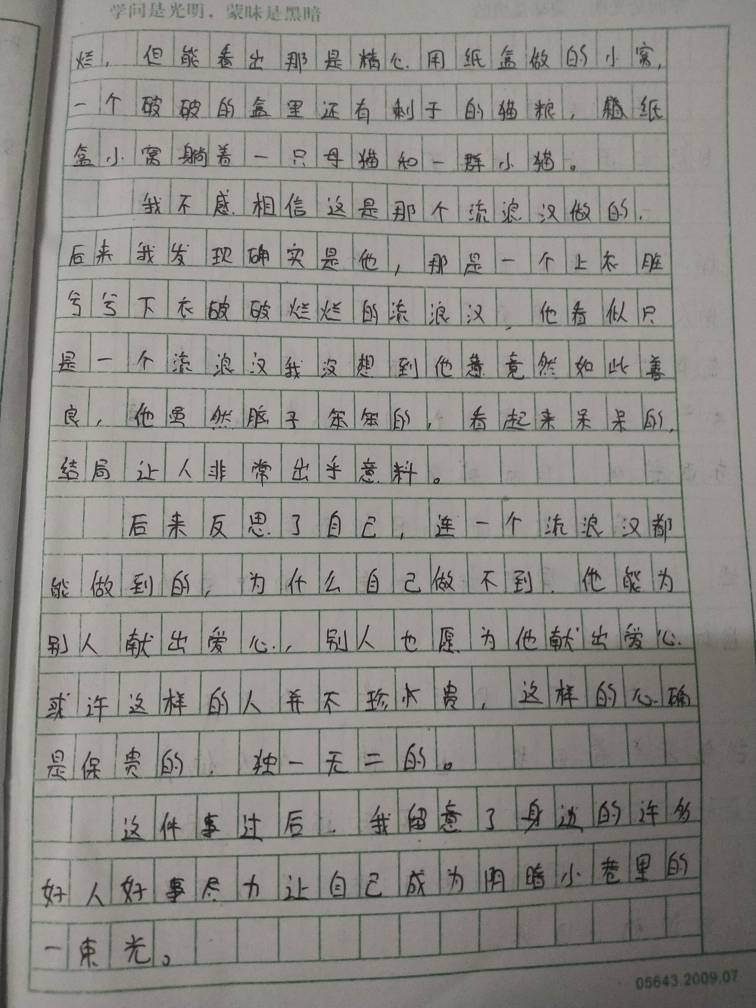 学问是光明，蒙昧是黑暗
烂，但能看出那是精心用纸盒做的小窝，
一个破破的盒里还有剩于的猫粮，纸
盒小窝躺着一只母猫和一群小猫。
我不感相信这是那个流浪汉做的，
后来我发现确实是他，那是一个上衣脏
兮兮下衣破破烂烂的流浪汉，他看似只
是一个流浪汉我没想到他意竟然如此善
良，他虽然脑子笨笨的，看起来呆呆的，
结局让人非常出乎意料。
后来反思了自己，连一个流浪汉都
能做到的，为什么自己做不到，他能为
别人献出爱心，别人也愿为他献出爱心
或许这样的人并不珍贵，这样的心确
是保贵的，独一无二的。
这件事过后，我留意了身边的许多
好人好事尽力让自己成为阴暗小巷里的
一束光。
05643.2009.07